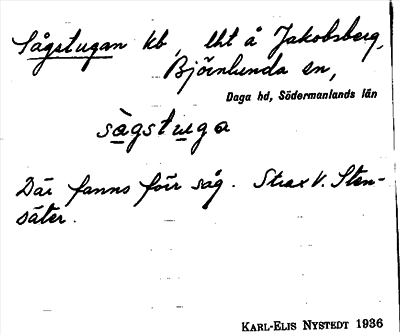 Sågstugan kb, lht å Jakobsberg,
Björnlunda sn,
Daga hd, Södermanlands län
sàgstuga
Där fanns förr såg. Strax V. Sten-
säter.
KARL-ELIS NYSTEDT 1936